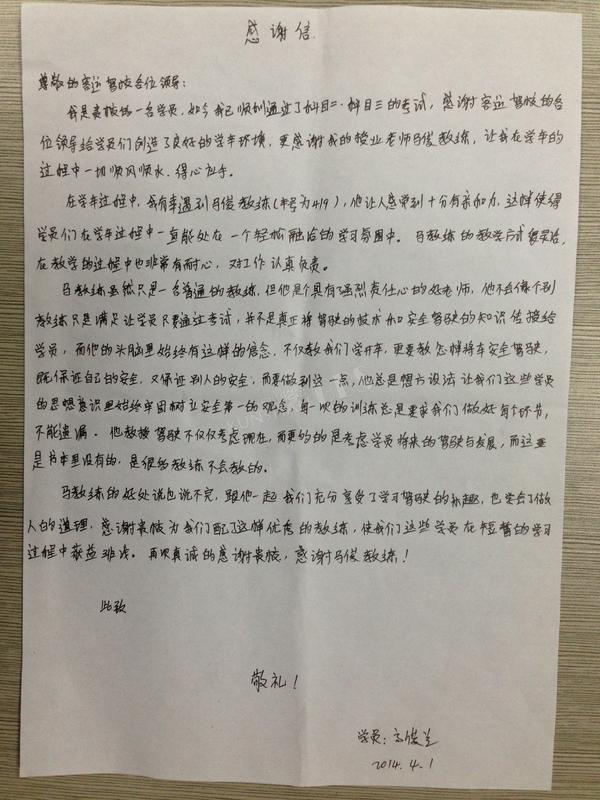 感谢信
尊敬的客运驾校各位领导：
我是贵校的一名学员，如今我已顺利通过了科目二、科目三的考试，感谢客运驾校的各
位领导给学员们创造了良好的学车环境，更感谢我的授业老师马俊教练，让我在学车的
过程中一切顺风顺水、得心应手。
在学车过程中，我有幸遇到马俊教练(车号为419)，他让人感觉到十分有亲和力，这样使得
学员们在学车过程中一直能处在一个轻松融洽的学习氛围中。马教练的教学方式很灵活，
在教学的过程中也非常有耐心，对工作认真负责。
马教练虽然只是一名普通的教练，但他是个具有强烈责任心的好老师，他不会像个别
教练只是满足让学员只要通过考试，并不是真正将驾驶的技术和安全驾驶的知识传授给
学员，而他的头脑里始终有这样的信念，不仅教我们学开车，更要教怎样将车安全驾驶，
既保证自己的安全，又保证别人的安全，而要做到这一点，他总是想方设法让我们这些学员
的思想意识里始终牢固树立安全第一的观念，每一次的训练总是要求我们做好每个环节，
不能遗漏。他教授驾驶不仅仅考虑现在，而更的的是考虑学员将来的驾驶与发展，而这些
是书本里没有的，是很多教练不会教的。
马教练的好处说也说不完，跟他一起我们充分享受了学习驾驶的乐趣，也学会了做
人的道理，感谢贵校为我们配了这样优秀的教练，使我们这些学员在短暂的学习
过程中获益匪浅。再次真诚的感谢贵校，感谢马俊教练！
此致
敬礼！
学员：高俊兰
2014.4.1